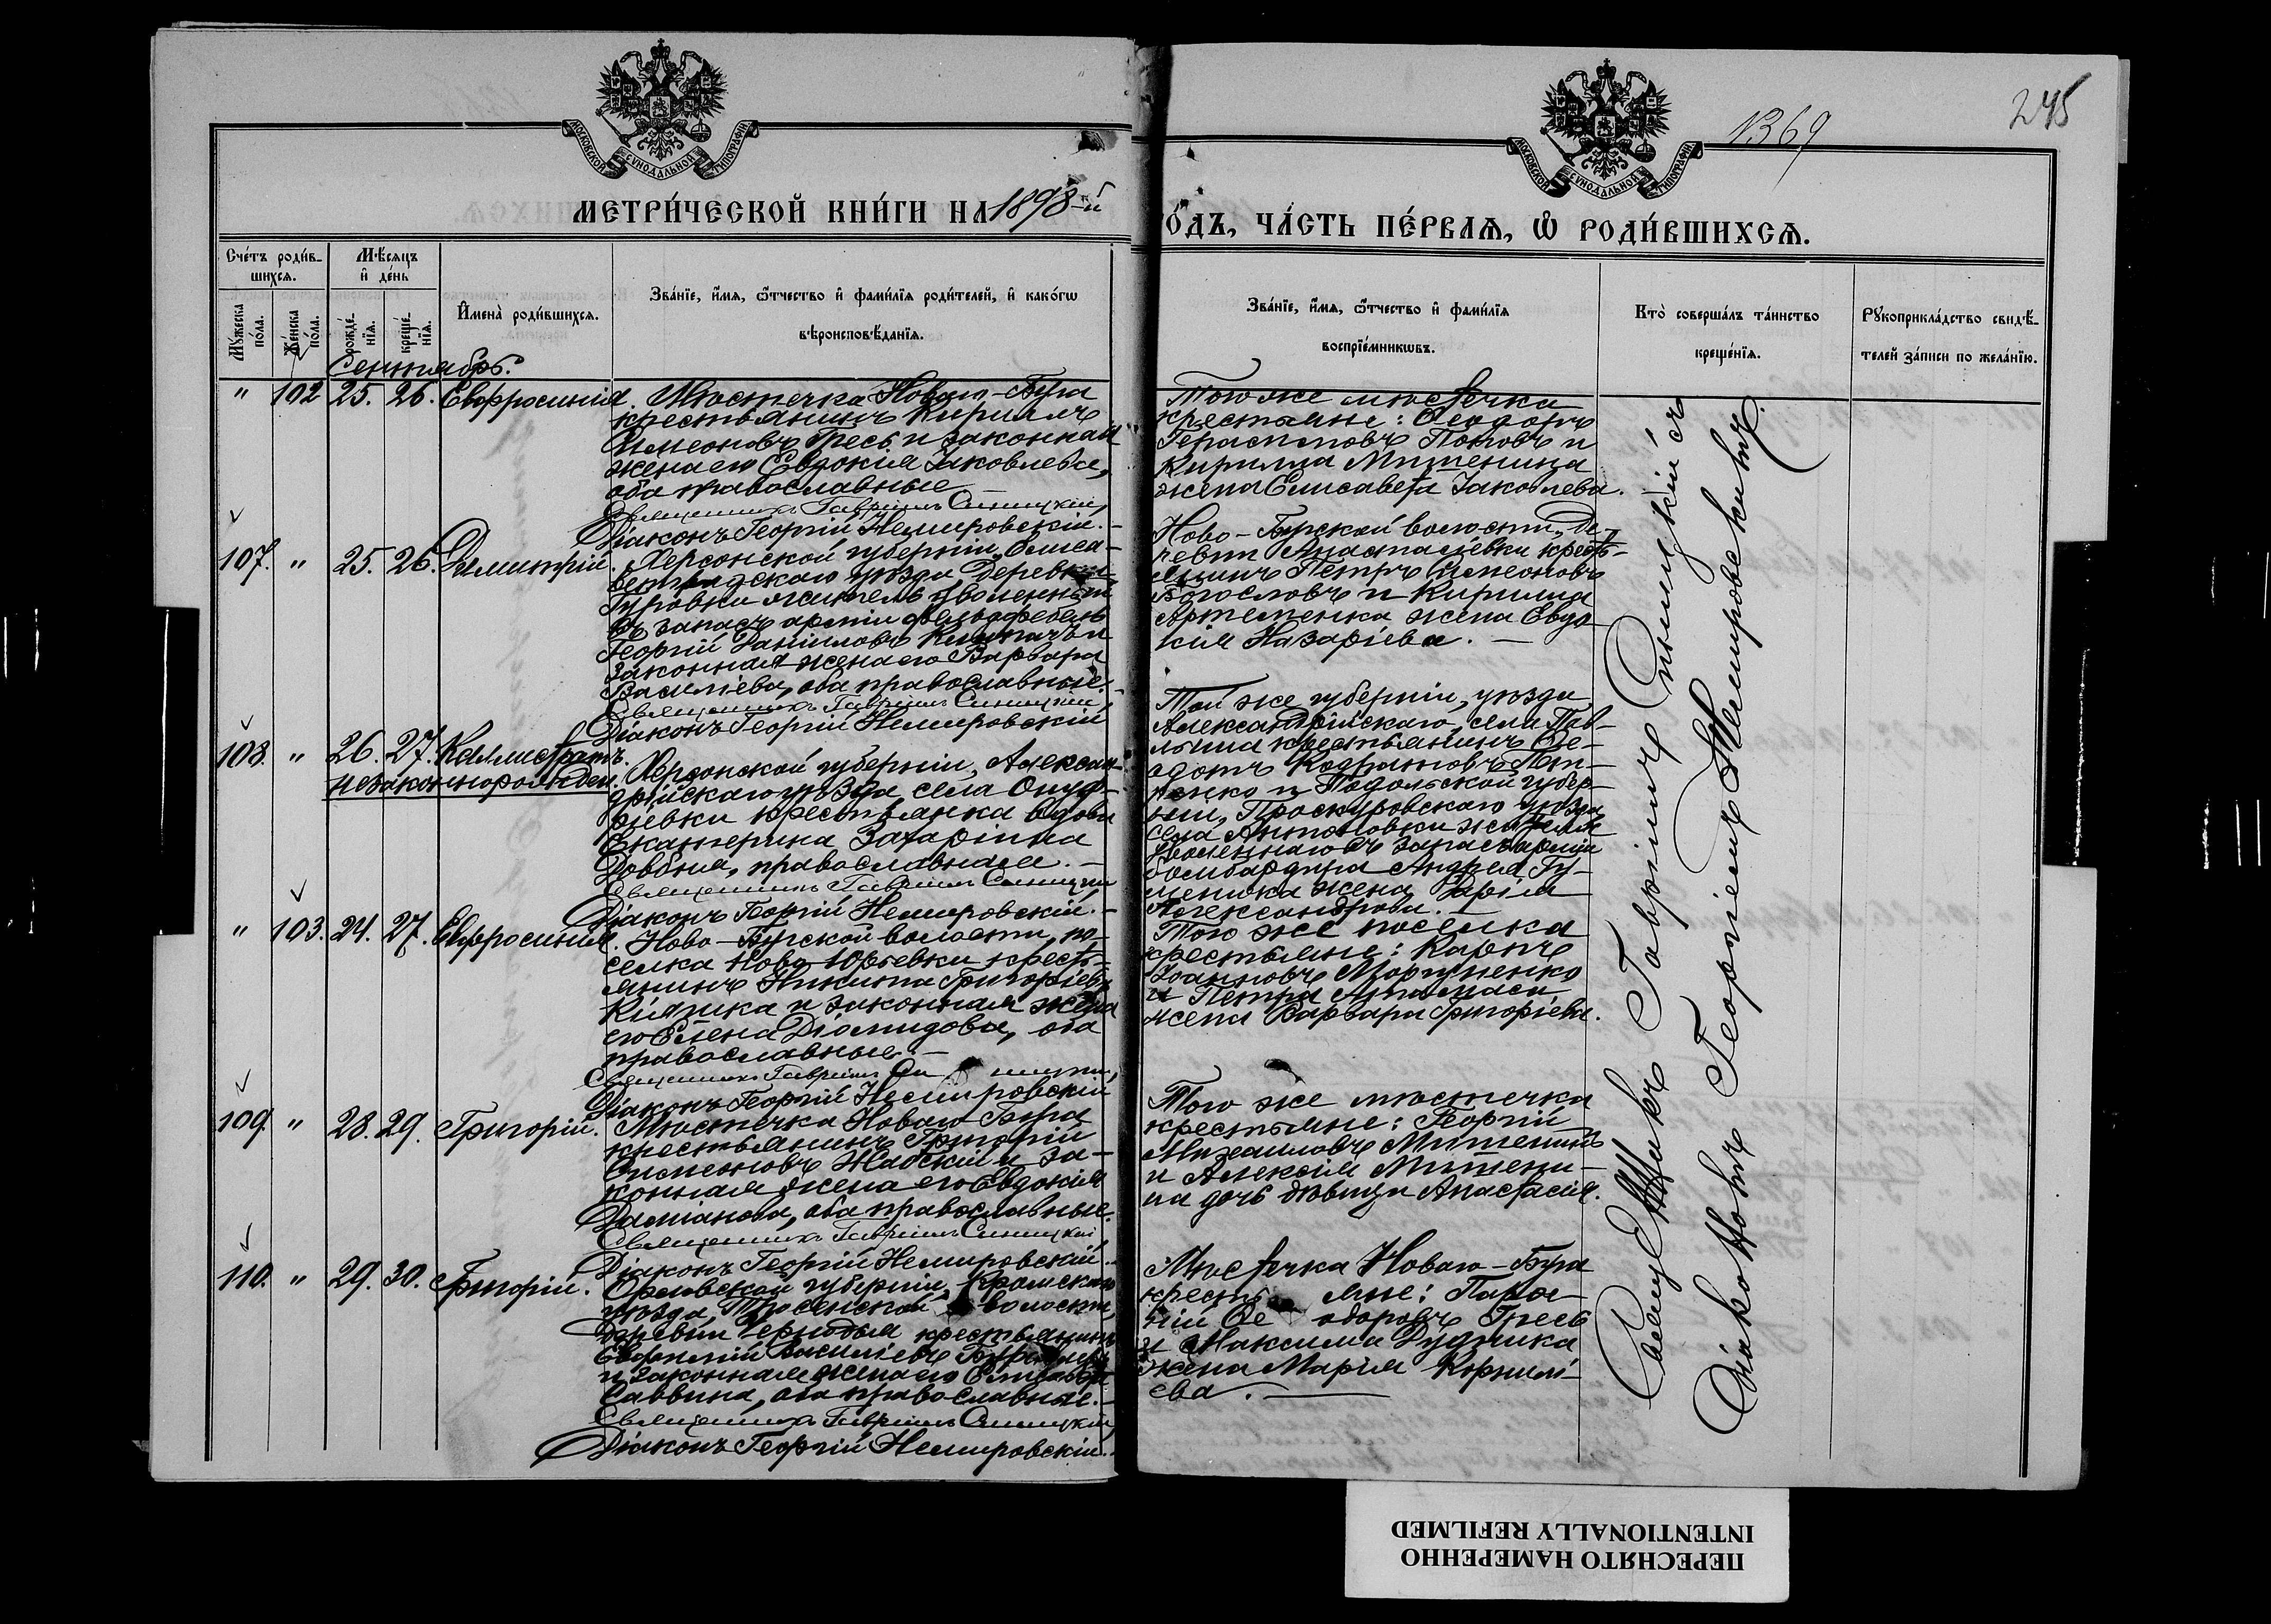 1369
245
МОСКОВСКОЙ СУНОДАЛЬНОЙ ТИПОГРАФІИ
МОСКОВСКОЙ СУНОДАЛЬНОЙ ТИПОГРАФІИ
МЕТРИ́ЧЕСКОЙ КНИ́ГИ НА 1898-й
ГО́ДЪ, ЧА́СТЬ ПЕ́РВАѦ, Ѡ РОДИ́ВШИХСѦ.
Сче́тъ роди́в-
шихся.
Мѣ́сяцъ
и де́нь
Му́жеска
по́ла.
Же́нска
по́ла.
рожде́-
нїя.
креще́-
нїя.
Имена̀ роди́вшихся.
Зва́нїе, и́мя, ѻ́тчество и фами́лїя роди́телей, и како́гѡ
вѣроисповѣ́данїя.
Зва́нїе, и́мя, ѻ́тчество и фами́лїя
воспрїе́мникѡвъ.
Кто̀ соверша́лъ та́инство
креще́нїя.
Рꙋкоприкла́дство свидѣ́-
телей за́писи по жела́нїю.
Сентябрь.
" 102 25. 26. Евфросинія. Мѣстечка Новаго-Буга
крестьянинъ Кириллъ
Симеоновъ Гресь и законная
жена его Евдокія Іаковлева,
оба православные
Священникъ Гавріилъ Синицкій,
Діаконъ Георгій Немировскій.-
Того же мѣстечка
крестьяне: Ѳеодоръ
Герасимовъ Поповъ и
Кирилла Митенина
жена Елисавета Іаковлева.
107. " 25. 26. Димитрій. Херсонской губерніи, Елиса-
ветградскаго уѣзда, деревни
Гуровки житель уволенный
въ запасъ арміи фельдфебель
Георгій Даніиловъ и
законная жена его Варвара
Василіева, оба православные.
Священникъ Гавріилъ Синицкій,
Діаконъ Георгій Немировскій
Ново-Бугской волости, де-
ревни Анастасіевки кресть-
янинъ Петръ Симеоновъ
Богословъ и Кирилла
Артеменка жена Евдо-
кія Назаріева. -
108. " 26. 27. Каллистратъ.
незаконнорожден. Херсонской губерніи, Алексан-
дрійскаго уѣзда села Онуф-
ріевки крестьянка вдова
Екатерина Захаріина
Довбня, православная. -
Священникъ Гавріилъ Синицкій
Діаконъ Георгій Немировскій. -
Той же губерніи, уѣзда
Александрійскаго, села Пав-
лыша крестьянинъ Ѳе-
одотъ Кодратовъ
и Подольской губер-
ніи, Проскуровскаго уѣзда
села Антоновки жителя
уволеннаго въ запасъ арміи
бомбардира Андрея Гу-
менюка жена Дарія
Александрова. -
" 103. 24. 27. Евфросинія. Ново-Бугской волости, по-
селка Ново-Юрьевки кресть-
янинъ Никита Григоріевъ
Кіяшка и законная жена
его Елена Діомидова, оба
православные. -
Священникъ Гавріилъ
Діаконъ Георгій Немировскій
Того же поселка
крестьяне: Карпъ
Іоанновъ Моргуненко
и Петра Артамаси
жена Варвара Григоріева.
109. " 28. 29. Григорій. Мѣстечка Новаго-Буга
крестьянинъ Григорій
Симеоновъ Жабскій и за-
конная жена его Евдокія
Даміанова, оба православные.
Священникъ Гавріилъ Синицкій,
Діаконъ Георгій Немировскій.
Того же мѣстечка
крестьяне: Георгій
Михаиловъ Митенинъ
и Алексія Митени-
на дочь дѣвица Анастасія.
110. " 29. 30. Григорій. Орловской губерніи, Кромскаго
уѣзда, Тросенской волости,
деревни Чернодья крестьянинъ
Евфимій Василіевъ
и законная жена его Елисавета
Саввина, оба православные. -
Священникъ Гавріилъ Синицкій,
Діаконъ Георгій Немировскій.
Мѣстечка Новаго-Буга
крестьяне: Парѳе-
ній Ѳеодоровъ Гресь
и Максима Дудника
жена Марія Корнилі-
ева. -
Священникъ Гавріилъ Синицкій съ
Діакономъ Георгіемъ Немировскимъ.
ПЕРЕСНЯТО НАМЕРЕННО
INTENTIONALLY REFILMED